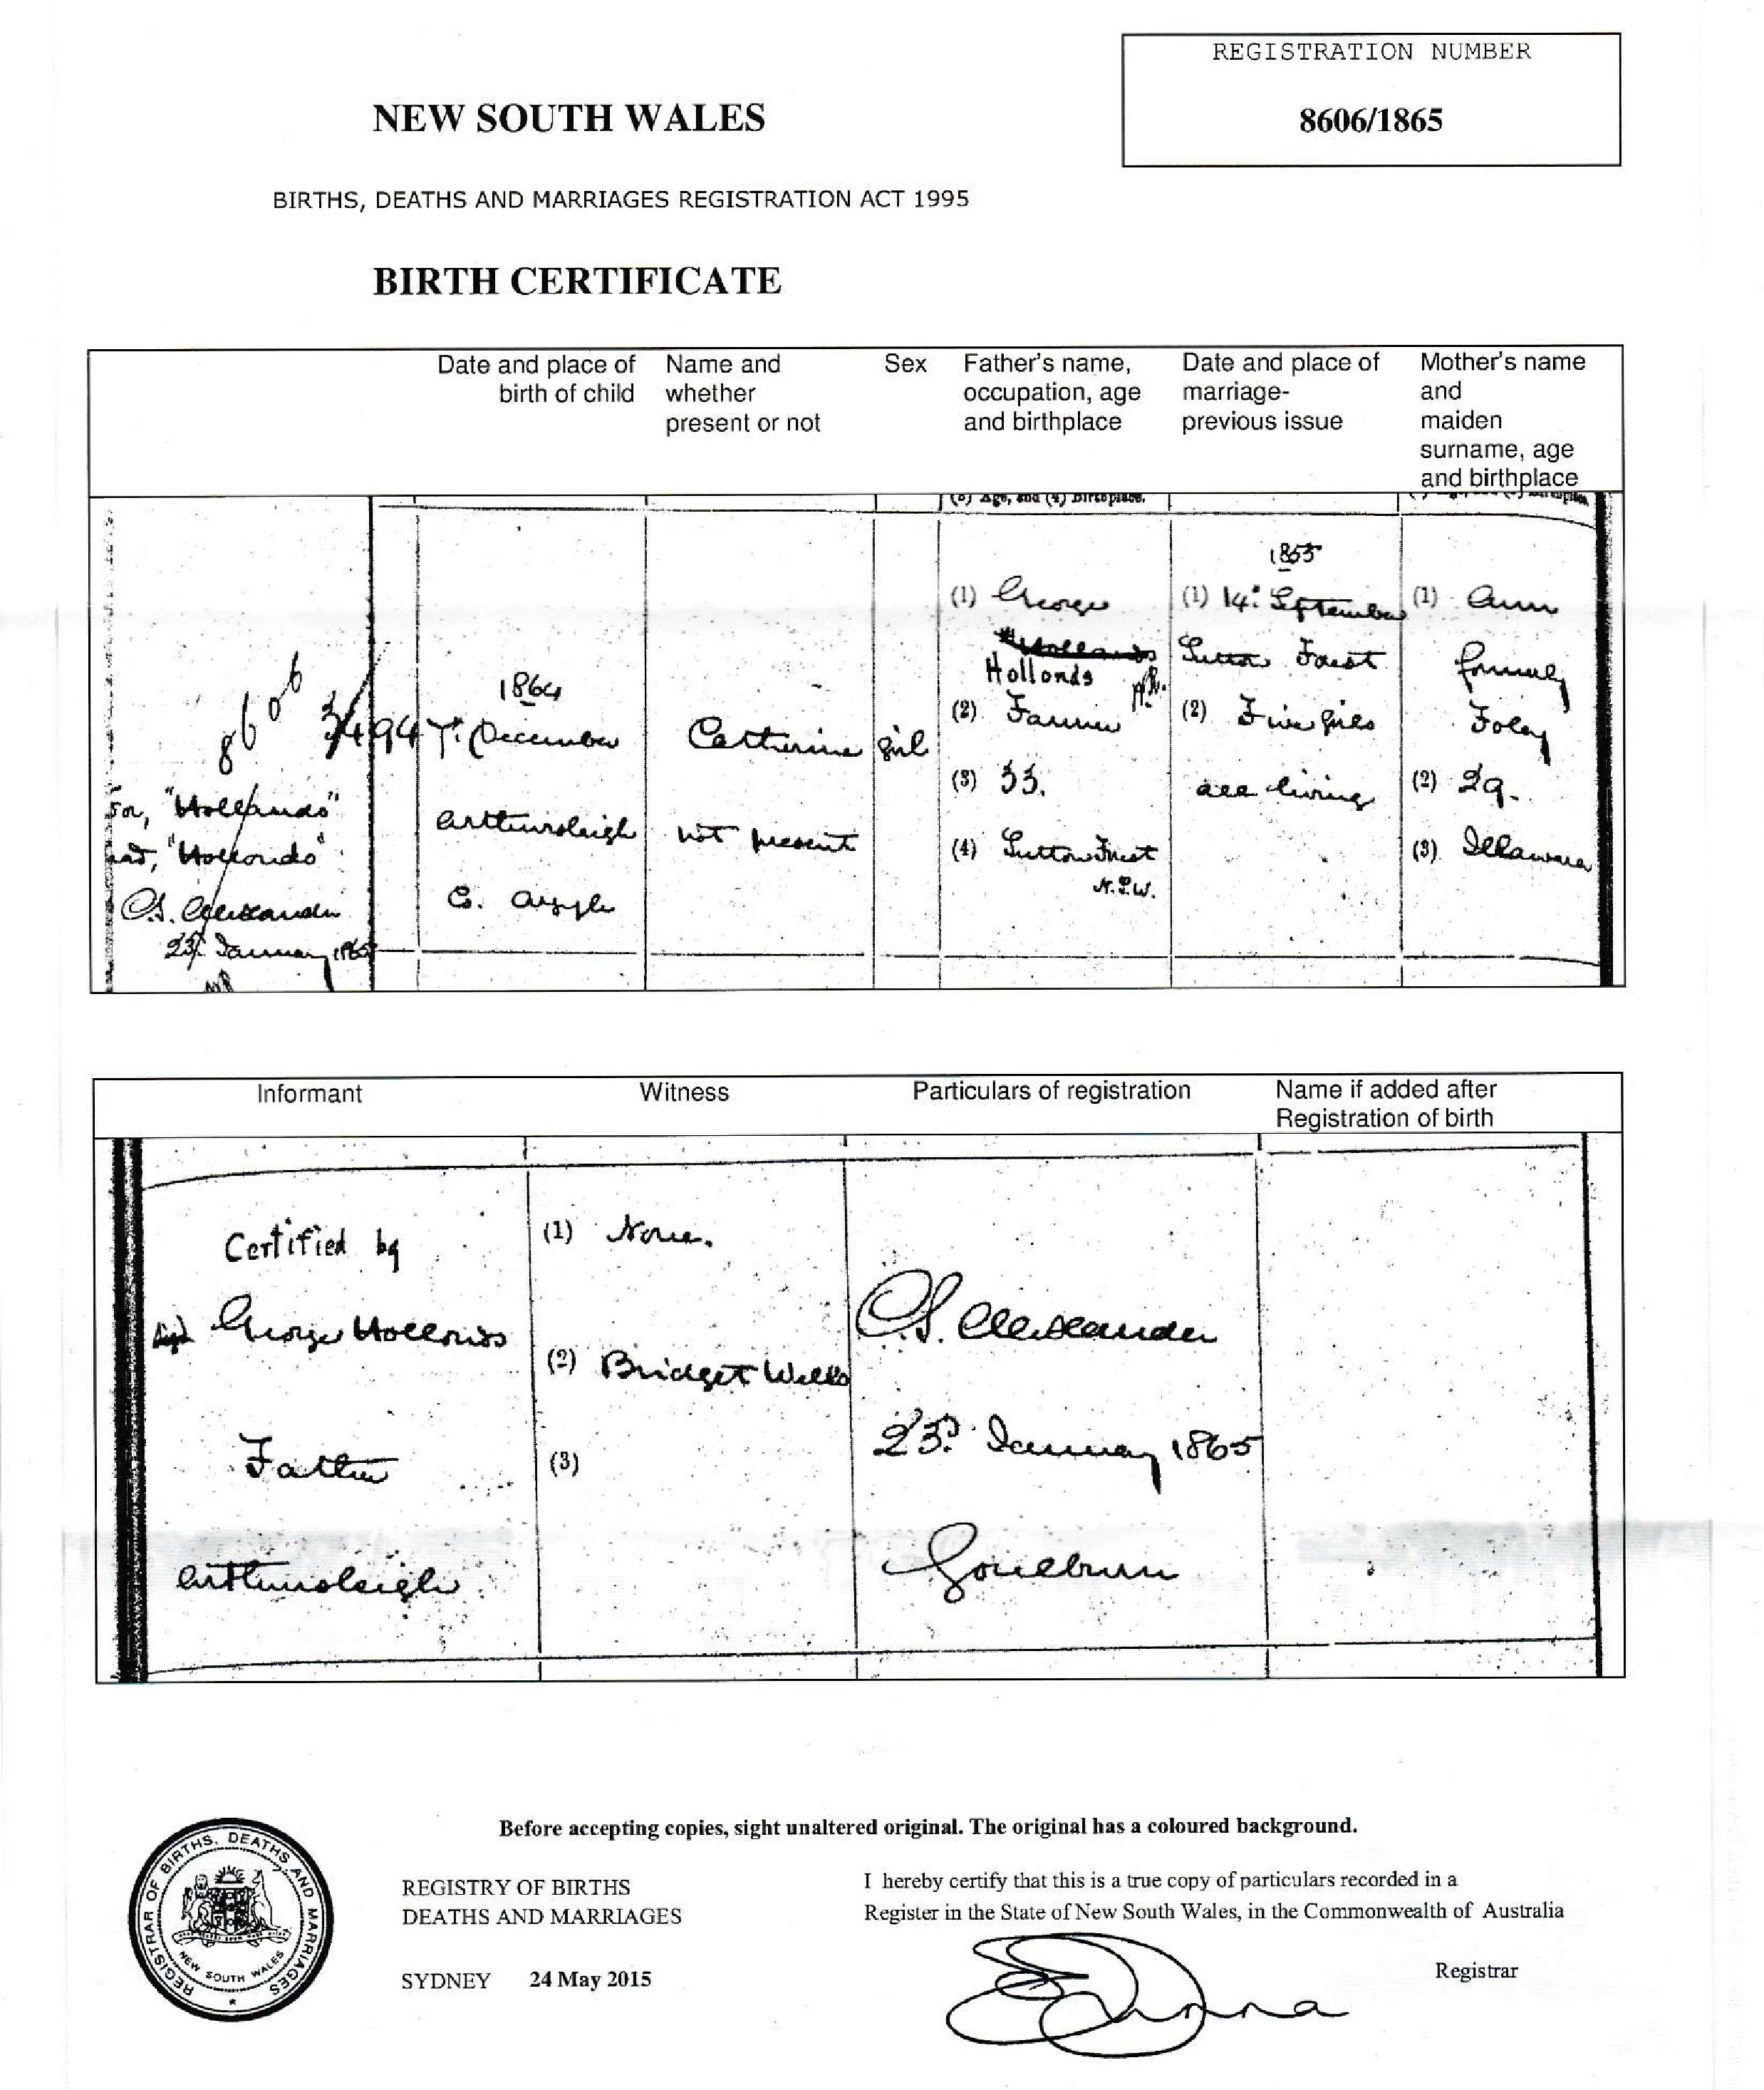 REGISTRATION NUMBER
8606/1865
NEW SOUTH WALES
BIRTHS, DEATHS AND MARRIAGES REGISTRATION ACT 1995
BIRTH CERTIFICATE
Date and place of birth of child
Name and whether present or not
Sex
Father's name, occupation, age and birthplace
Date and place of marriage- previous issue
Mother's name and maiden surname, age and birthplace
(3) Age, and (4) Birthplace.
8606
3494
For, "Hollands"
read, "Hollonds"
C.S. Alexander
23. January 1865
1864
7. December
Arthursleigh
C. Argyle
Catherine
not present
girl
(1) George
Hollonds
(2) Farmer
(3) 33.
(4) Sutton Forest
N.S.W.
1855
(1) 14. September
Sutton Forest
(2) Five girls
all living
(1) Ann
formerly
Foley
(2) 29.
(3) Illawarra
Informant
Witness
Particulars of registration
Name if added after
Registration of birth
Certified by
George Hollonds
Father
Arthursleigh
(1) None.
(2) Bridget Wells
(3)
C.S. Alexander
23. January 1865
Goulburn
Before accepting copies, sight unaltered original. The original has a coloured background.
REGISTRAR OF BIRTHS, DEATHS AND MARRIAGES
NEW SOUTH WALES
REGISTRY OF BIRTHS
DEATHS AND MARRIAGES
SYDNEY 24 May 2015
I hereby certify that this is a true copy of particulars recorded in a
Register in the State of New South Wales, in the Commonwealth of Australia
Registrar